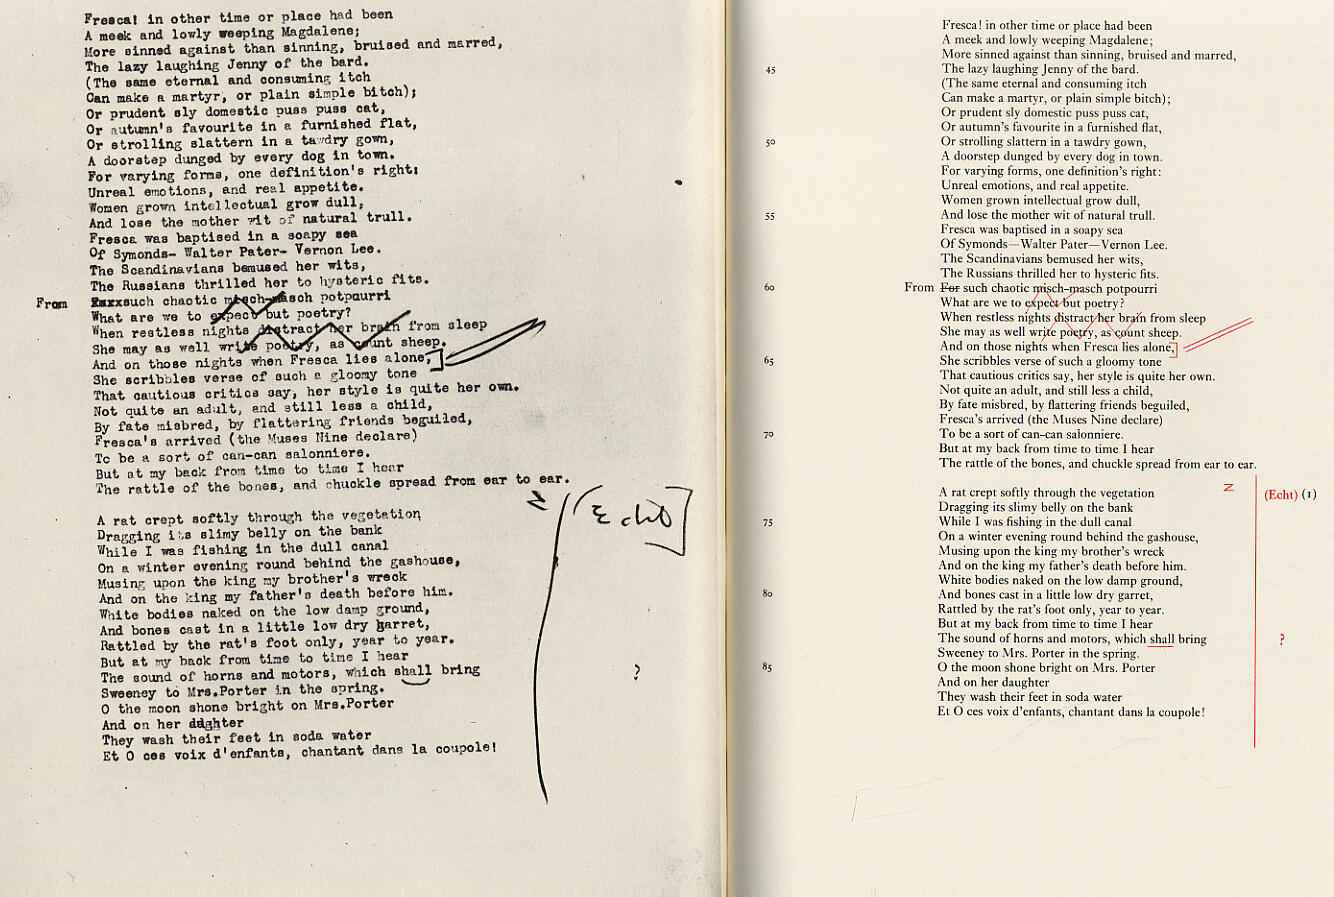 Fresca! in other time or place had been
A meek and lowly weeping Magdalene;
More sinned against than sinning, bruised and marred,
The lazy laughing Jenny of the bard.
(The same eternal and consuming itch
Can make a martyr, or plain simple bitch);
Or prudent sly domestic puss puss cat,
Or autumn's favourite in a furnished flat,
Or strolling slattern in a tawdry gown,
A doorstep dunged by every dog in town.
For varying forms, one definition's right:
Unreal emotions, and real appetite.
Women grown intellectual grow dull,
And lose the mother wit of natural trull.
Fresca was baptised in a soapy sea
Of Symonds- Walter Pater- Vernon Lee.
The Scandinavians bemused her wits,
The Russians thrilled her to hysteric fits.
From such chaotic misch-masch potpourri
What are we to expect but poetry?
When restless nights distract her brain from sleep
She may as well write poetry, as count sheep.
And on those nights when Fresca lies alone,]
She scribbles verse of such a gloomy tone
That cautious critics say, her style is quite her own.
Not quite an adult, and still less a child,
By fate misbred, by flattering friends beguiled,
Fresca's arrived (the Muses Nine declare)
To be a sort of can-can salonniere.
But at my back from time to time I hear
The rattle of the bones, and chuckle spread from ear to ear.
[Echt]
A rat crept softly through the vegetation
Dragging its slimy belly on the bank
While I was fishing in the dull canal
On a winter evening round behind the gashouse,
Musing upon the king my brother's wreck
And on the king my father's death before him.
White bodies naked on the low damp ground,
And bones cast in a little low dry garret,
Rattled by the rat's foot only, year to year.
But at my back from time to time I hear
The sound of horns and motors, which shall bring ?
Sweeney to Mrs.Porter in the spring.
O the moon shone bright on Mrs.Porter
And on her daghter
They wash their feet in soda water
Et O ces voix d'enfants, chantant dans la coupole!
Fresca! in other time or place had been
A meek and lowly weeping Magdalene;
More sinned against than sinning, bruised and marred,
45 The lazy laughing Jenny of the bard.
(The same eternal and consuming itch
Can make a martyr, or plain simple bitch);
Or prudent sly domestic puss puss cat,
Or autumn's favourite in a furnished flat,
50 Or strolling slattern in a tawdry gown,
A doorstep dunged by every dog in town.
For varying forms, one definition's right:
Unreal emotions, and real appetite.
Women grown intellectual grow dull,
55 And lose the mother wit of natural trull.
Fresca was baptised in a soapy sea
Of Symonds—Walter Pater—Vernon Lee.
The Scandinavians bemused her wits,
The Russians thrilled her to hysteric fits.
60 From For such chaotic misch-masch potpourri
What are we to expect but poetry?
When restless nights distract her brain from sleep
She may as well write poetry, as count sheep.
And on those nights when Fresca lies alone,]
65 She scribbles verse of such a gloomy tone
That cautious critics say, her style is quite her own.
Not quite an adult, and still less a child,
By fate misbred, by flattering friends beguiled,
Fresca's arrived (the Muses Nine declare)
70 To be a sort of can-can salonniere.
But at my back from time to time I hear
The rattle of the bones, and chuckle spread from ear to ear.
A rat crept softly through the vegetation (Echt) (1)
Dragging its slimy belly on the bank
75 While I was fishing in the dull canal
On a winter evening round behind the gashouse,
Musing upon the king my brother's wreck
And on the king my father's death before him.
White bodies naked on the low damp ground,
80 And bones cast in a little low dry garret,
Rattled by the rat's foot only, year to year.
But at my back from time to time I hear
The sound of horns and motors, which shall bring ?
Sweeney to Mrs. Porter in the spring.
85 O the moon shone bright on Mrs. Porter
And on her daughter
They wash their feet in soda water
Et O ces voix d'enfants, chantant dans la coupole!